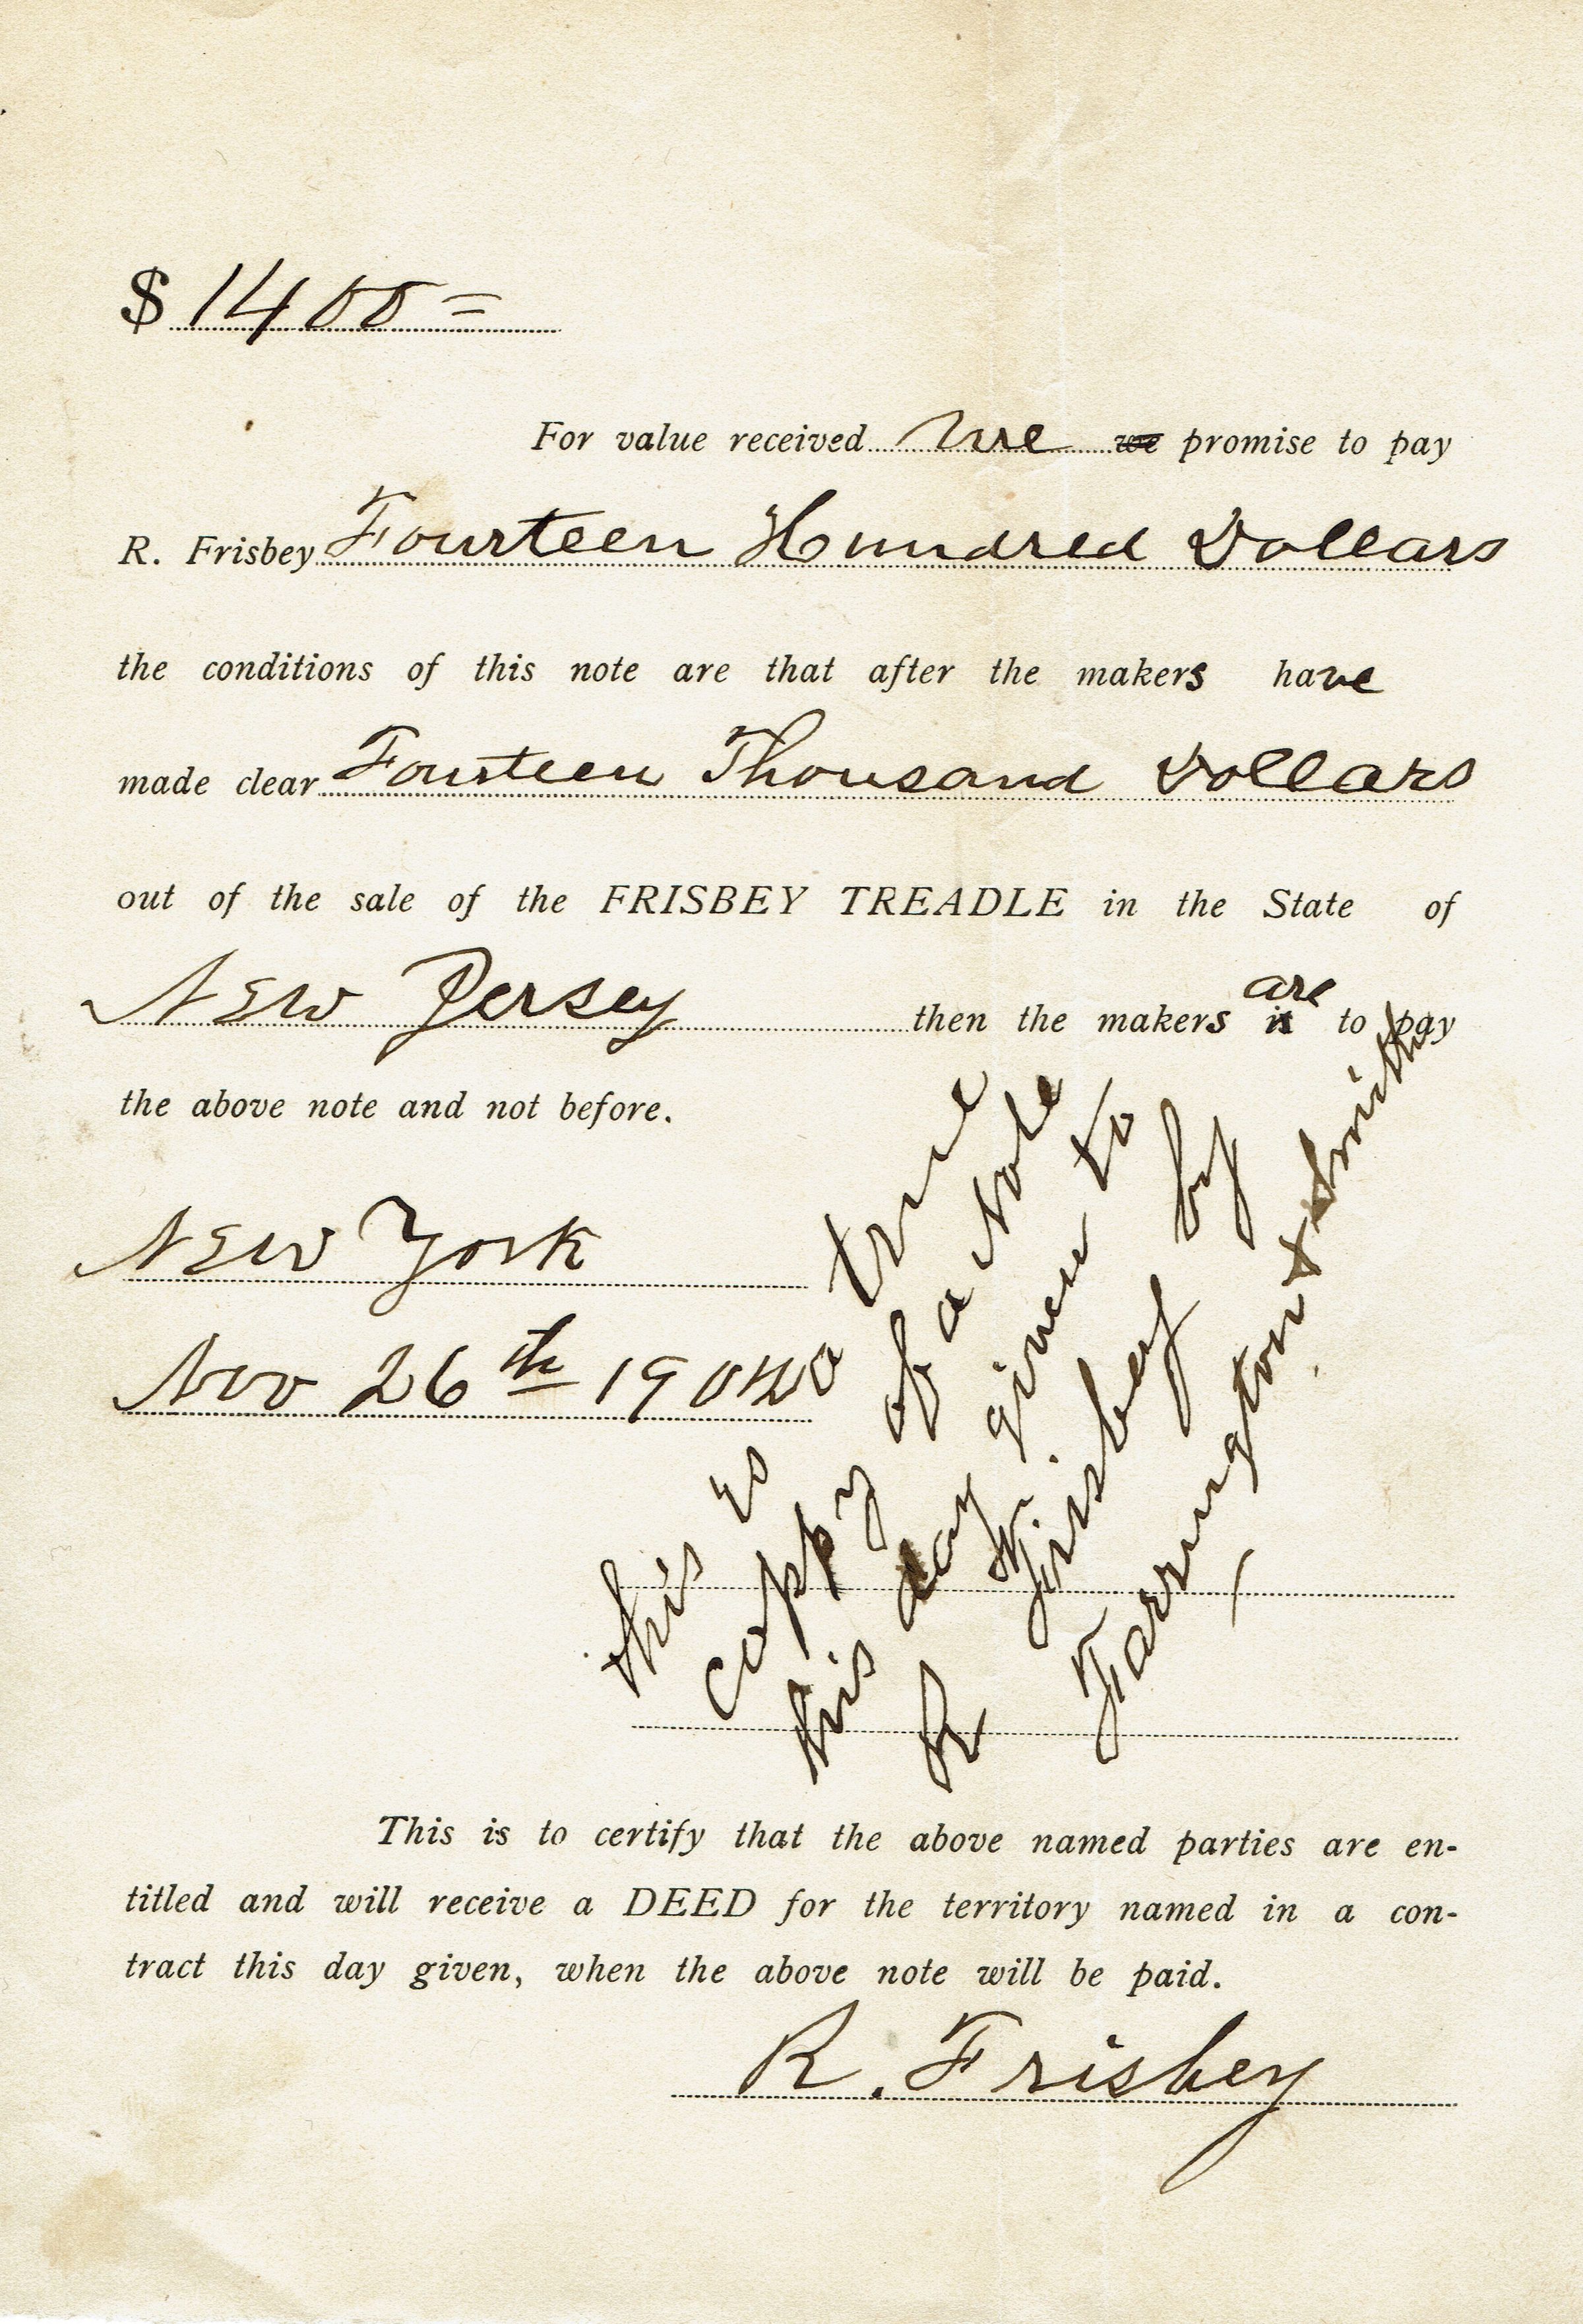 $ 1400 =
For value received We we promise to pay
R. Frisbey Fourteen Hundred Dollars
the conditions of this note are that after the makers have
made clear Fourteen Thousand Dollars
out of the sale of the FRISBEY TREADLE in the State of
New Jersey then the makers is are to pay
the above note and not before.
New York
Nov 26th 1904
this is a true
coppy of a Note
this day given to
R Frisbey by
Farrington & Smith
This is to certify that the above named parties are en-
titled and will receive a DEED for the territory named in a con-
tract this day given, when the above note will be paid.
R. Frisbey